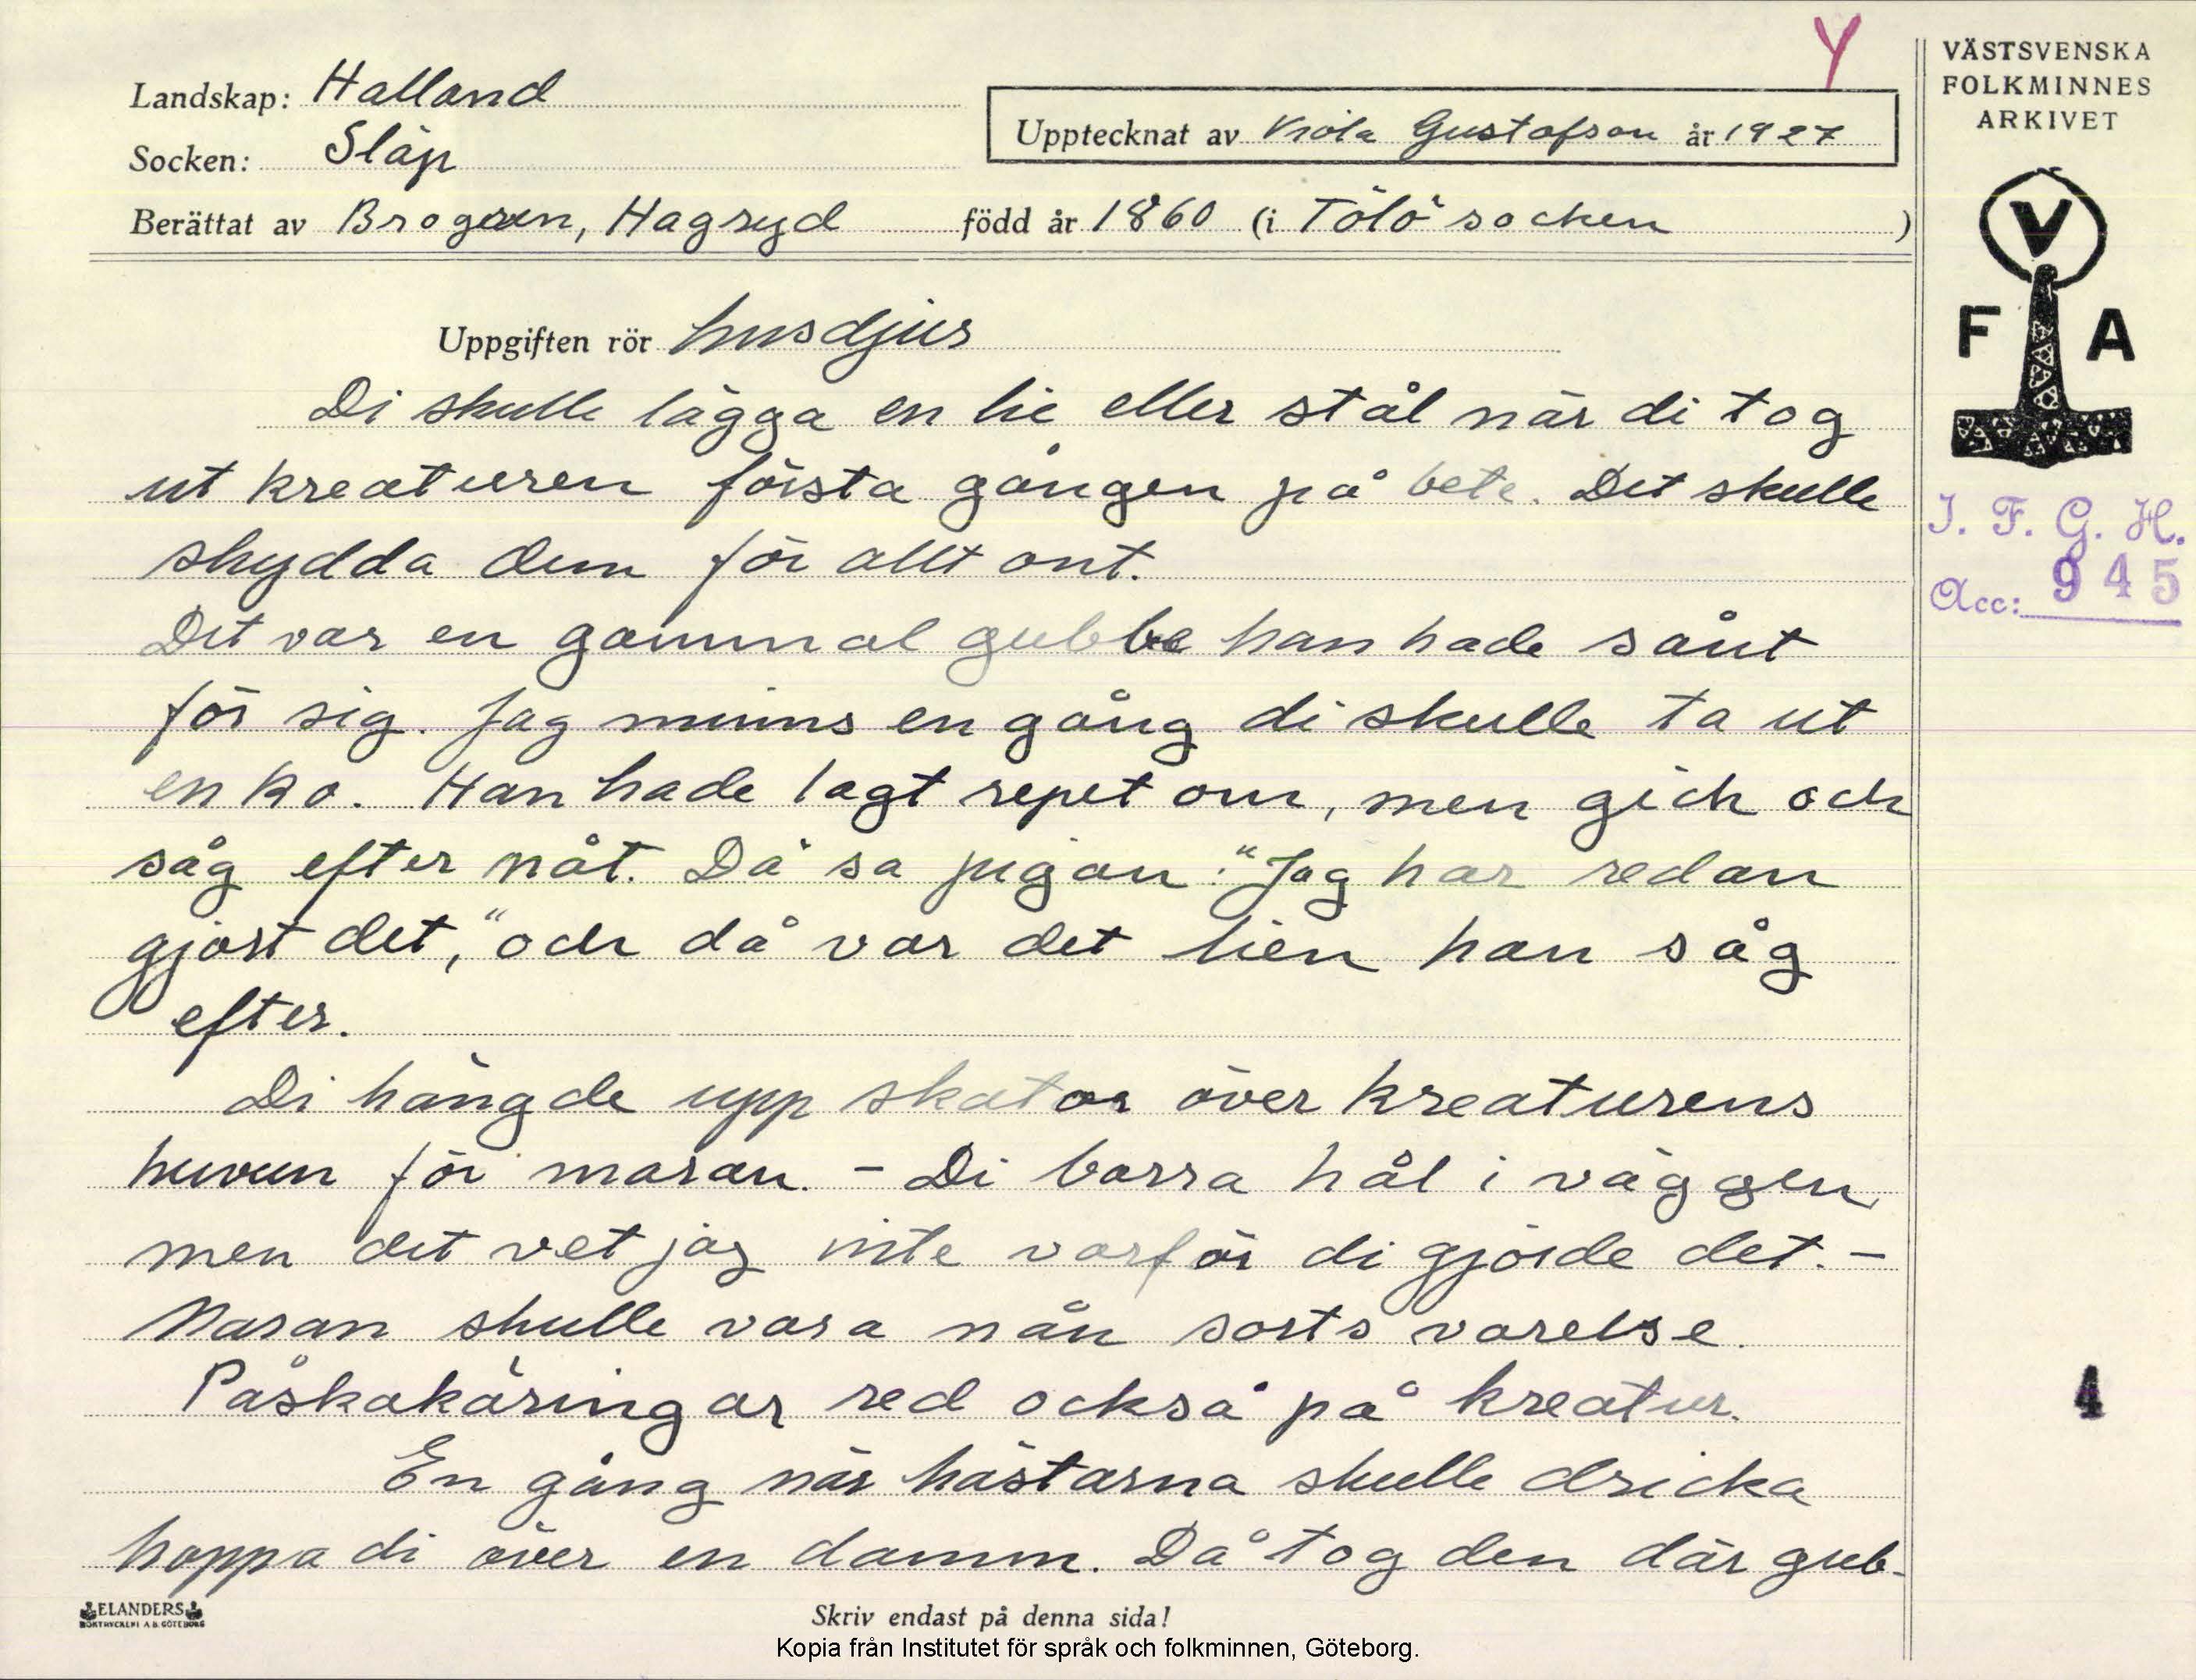 Y
VÄSTSVENSKA
FOLKMINNES
ARKIVET
Landskap: Halland
Socken: Släp
Upptecknat av Viola Gustafson år 1927
Berättat av Brogren, Hagryd född år 1860 (i Tölö socken )
V
F A
I. F. G. H.
Acc: 945
Uppgiften rör husdjur
Di skulle lägga en lie eller stål när di tog
ut kreaturen första gången på bete. Det skulle
skydda dem för allt ont.
Det var en gammal gubbe han hade sånt
för sig. Jag minns en gång di skulle ta ut
en ko. Han hade lagt repet om, men gick och
såg efter nåt. Då sa pigan: "Jag har redan
gjort det," och då var det lien han såg
efter.
Di hängde upp skator över kreaturens
huvun för maran. - Di borra hål i väggen,
men det vet jag inte varför di gjörde det. -
Maran skulle vara nån sorts varelse.
Påskakäringar red också på kreatur.
En gång när hästarna skulle dricka
hoppa di över en damm. Då tog den där gub-
4
ELANDERS
BOKTRYCKERI A.B. GÖTEBORG
Skriv endast på denna sida!
Kopia från Institutet för språk och folkminnen, Göteborg.